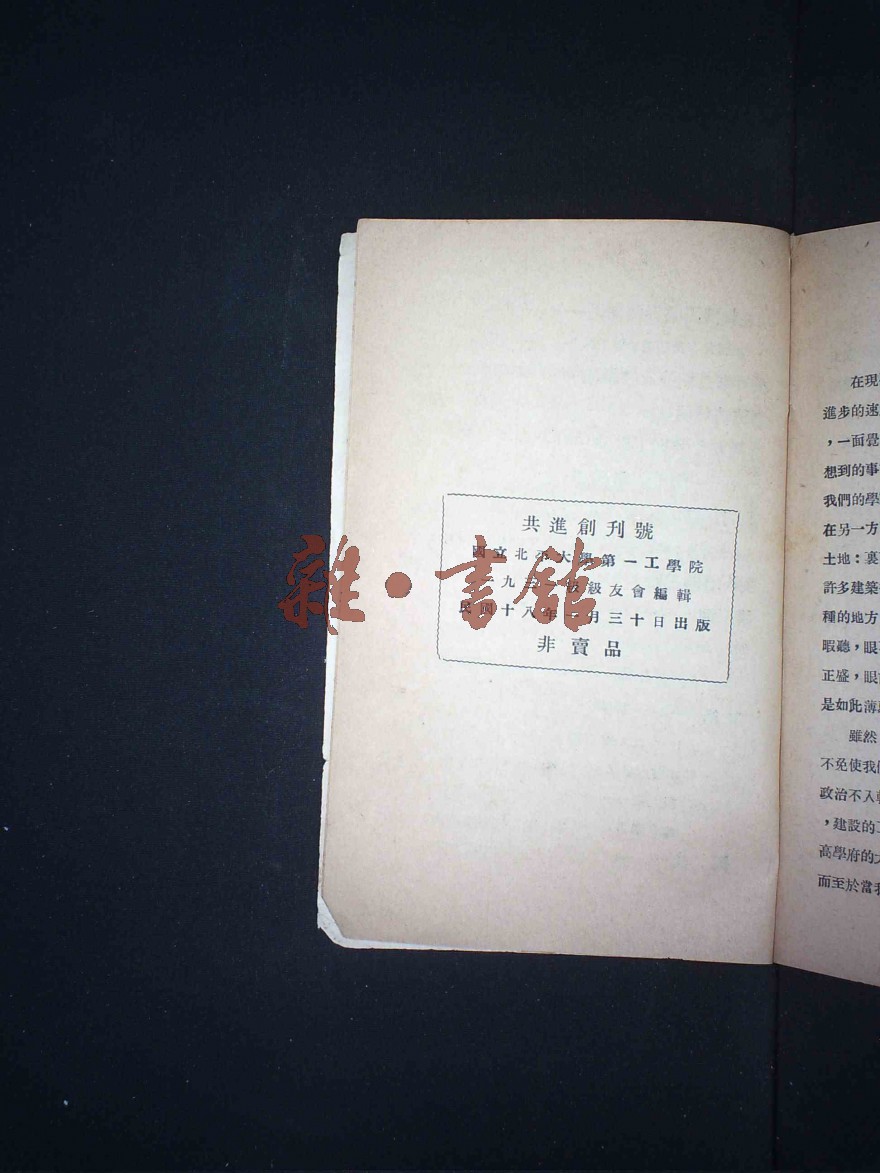 共進創刊號
國立北平大學第一工學院
一九三一級級友會編輯
民國十八年 月三十日出版
非賣品
雜·書館
在現
進步的速
，一面覺
想到的事
我們的學
在另一方
土地：裏
許多建築
種的地方
暇聽，眼
正盛，眼
是如此薄
雖然
不免使我們
政治不入
，建設的
高學府的
而至於當我